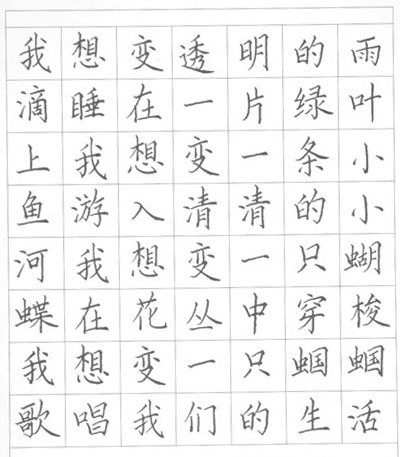 我想变透明的雨
滴睡在一片绿叶
上我想变一条小
鱼游入清清的小
河我想变一只蝴
蝶在花丛中穿梭
我想变一只蝈蝈
歌唱我们的生活